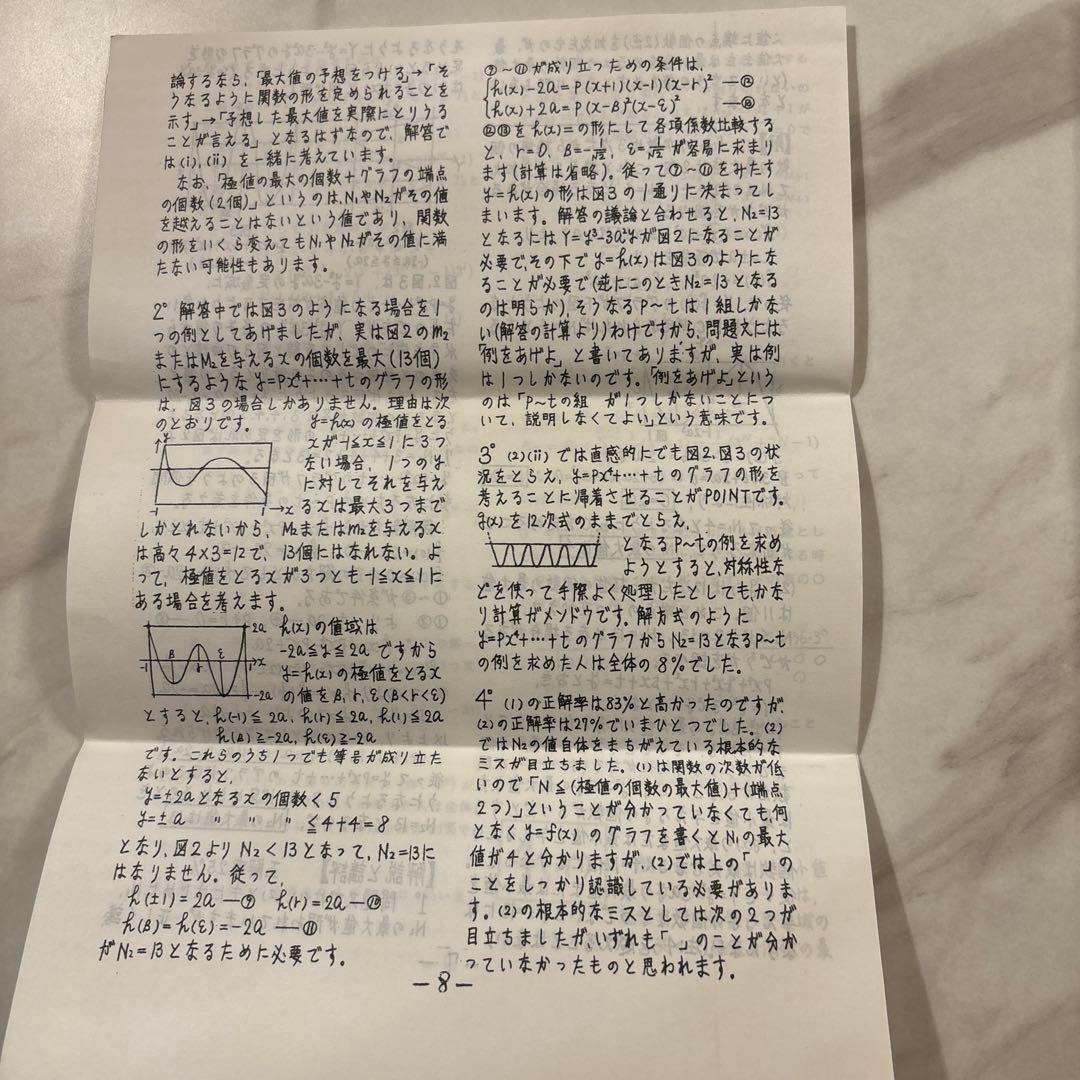 論するなら,「最大値の予想をつける」→「そ
うなるように関数の形を定められることを
示す」→「予想した最大値を実際にとりうる
ことが言える」となるはずなので,解答で
は(i),(ii)を一緒に考えています。
なお,「極値の最大の個数+グラフの端点
の個数(2個)」というのは,N₁やN₂がその値
を越えることはないという値であり,関数
の形をいくら変えてもN₁やN₂がその値に満
たない可能性もあります。
2° 解答中では図3のようになる場合を1
つの例としてあげましたが,実は図2のm₂
またはM₂を与えるxの個数を最大(13個)
にするようなy=px⁴+…+tのグラフの形
は,図3の場合しかありません。理由は次
のとおりです。
y=h(x)の極値をとる
xが-1≦x≦1に3つ
ない場合,1つのy
に対してそれを与え
るxは最大3つまで
しかとれないから,M₂またはm₂を与えるx
は高々4×3=12で,13個にはなれない。よ
って,極値をとるxが3つとも-1≦x≦1に
ある場合を考えます。
y
-1
1
x
2a
β
r
ε
-1
1
x
-2a
h(x)の値域は
-2a≦y≦2aですから
y=h(x)の極値をとるx
の値をβ,r,ε(β<r<ε)
とすると,h(-1)≦2a,h(r)≦2a,h(1)≦2a
h(β)≧-2a,h(ε)≧-2a
です。これらのうち1つでも等号が成り立た
ないとすると,
y=±2aとなるxの個数<5
y=±a 〃 〃 〃 ≦4+4=8
となり,図2よりN₂<13となって,N₂=13に
はなりません。従って,
h(±1)=2a―⑨ h(r)=2a―⑩
h(β)=h(ε)=-2a ―⑪
がN₂=13となるために必要です。
⑨~⑪が成り立つための条件は,
h(x)-2a=p(x+1)(x-1)(x-r)² ―⑫
h(x)+2a=p(x-β)²(x-ε)² ―⑬
⑫⑬をh(x)=の形にして各項係数比較する
と,r=0,β=-1/√2,ε=1/√2が容易に求まり
ます(計算は省略)。従って⑨~⑪をみたす
y=h(x)の形は図3の1通りに決まってし
まいます。解答の議論と合わせると,N₂=13
となるにはY=y³-3a²yが図2になることが
必要で,その下でy=h(x)は図3のようにな
ることが必要で(逆にこのときN₂=13となる
のは明らか),そうなるp~tは1組しかな
い(解答の計算より)わけですから,問題文には
「例をあげよ」と書いてありますが,実は例
は1つしかないのです。「例をあげよ」という
のは「p~tの組が1つしかないことにつ
いて,説明しなくてよい」という意味です。
3° (2)(ii)では直感的にでも図2,図3の状
況をとらえ,y=px⁴+…+tのグラフの形を
考えることに帰着させることがPOINTです。
g(x)を12次式のままでとらえ,
となるp~tの例を求め
ようとすると,対称性な
どを使って手際よく処理したとしても,かな
り計算がメンドウです。解方式のように
y=px⁴+…+tのグラフからN₂=13となるp~t
の例を求めた人は全体の8%でした。
4° (1)の正解率は83%と高かったのですが,
(2)の正解率は27%でいまひとつでした。(2)
ではN₂の値自体をまちがえている根本的な
ミスが目立ちました。(1)は関数の次数が低
いので「N≦(極値の個数の最大値)+(端点
2つ)」ということが分かっていなくても,何
となくy=f(x)のグラフを書くとN₁の最大
値が4と分かりますが,(2)では上の「 」の
ことをしっかり認識している必要がありま
す。(2)の根本的なミスとしては次の2つが
目立ちましたが,いずれも「 」のことが分か
っていなかったものと思われます。
-8-